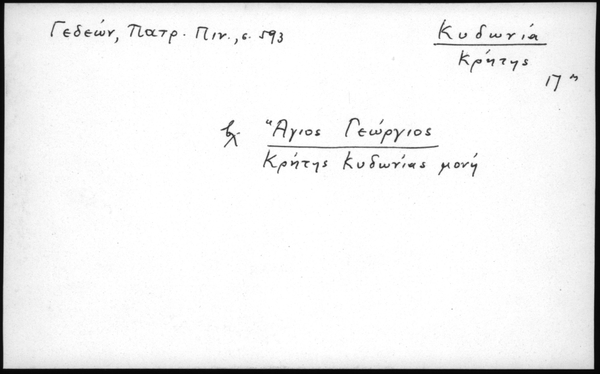 Γεδεών, Πατρ. Πιν., σ. 593
Κυδωνία
Κρήτης
17 "
βλ. Ἅγιος Γεώργιος
Κρήτης Κυδωνίας μονή